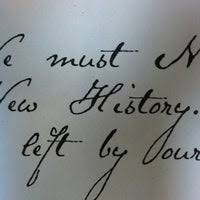 e must N
New History.
left by our